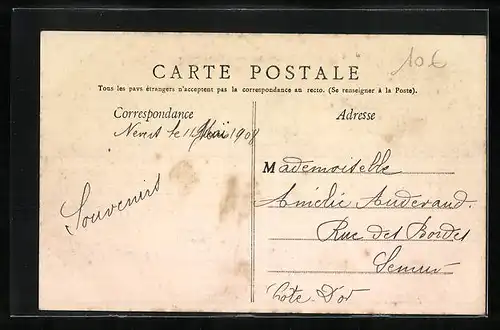 10 €
CARTE POSTALE
Tous les pays étrangers n'acceptent pas la correspondance au recto. (Se renseigner à la Poste).
Correspondance
Adresse
le 11 Mai 1908
Mademoiselle
Amélie Auderand.
Rue des Bordes
Semur
Côte-D'or
Souvenirs